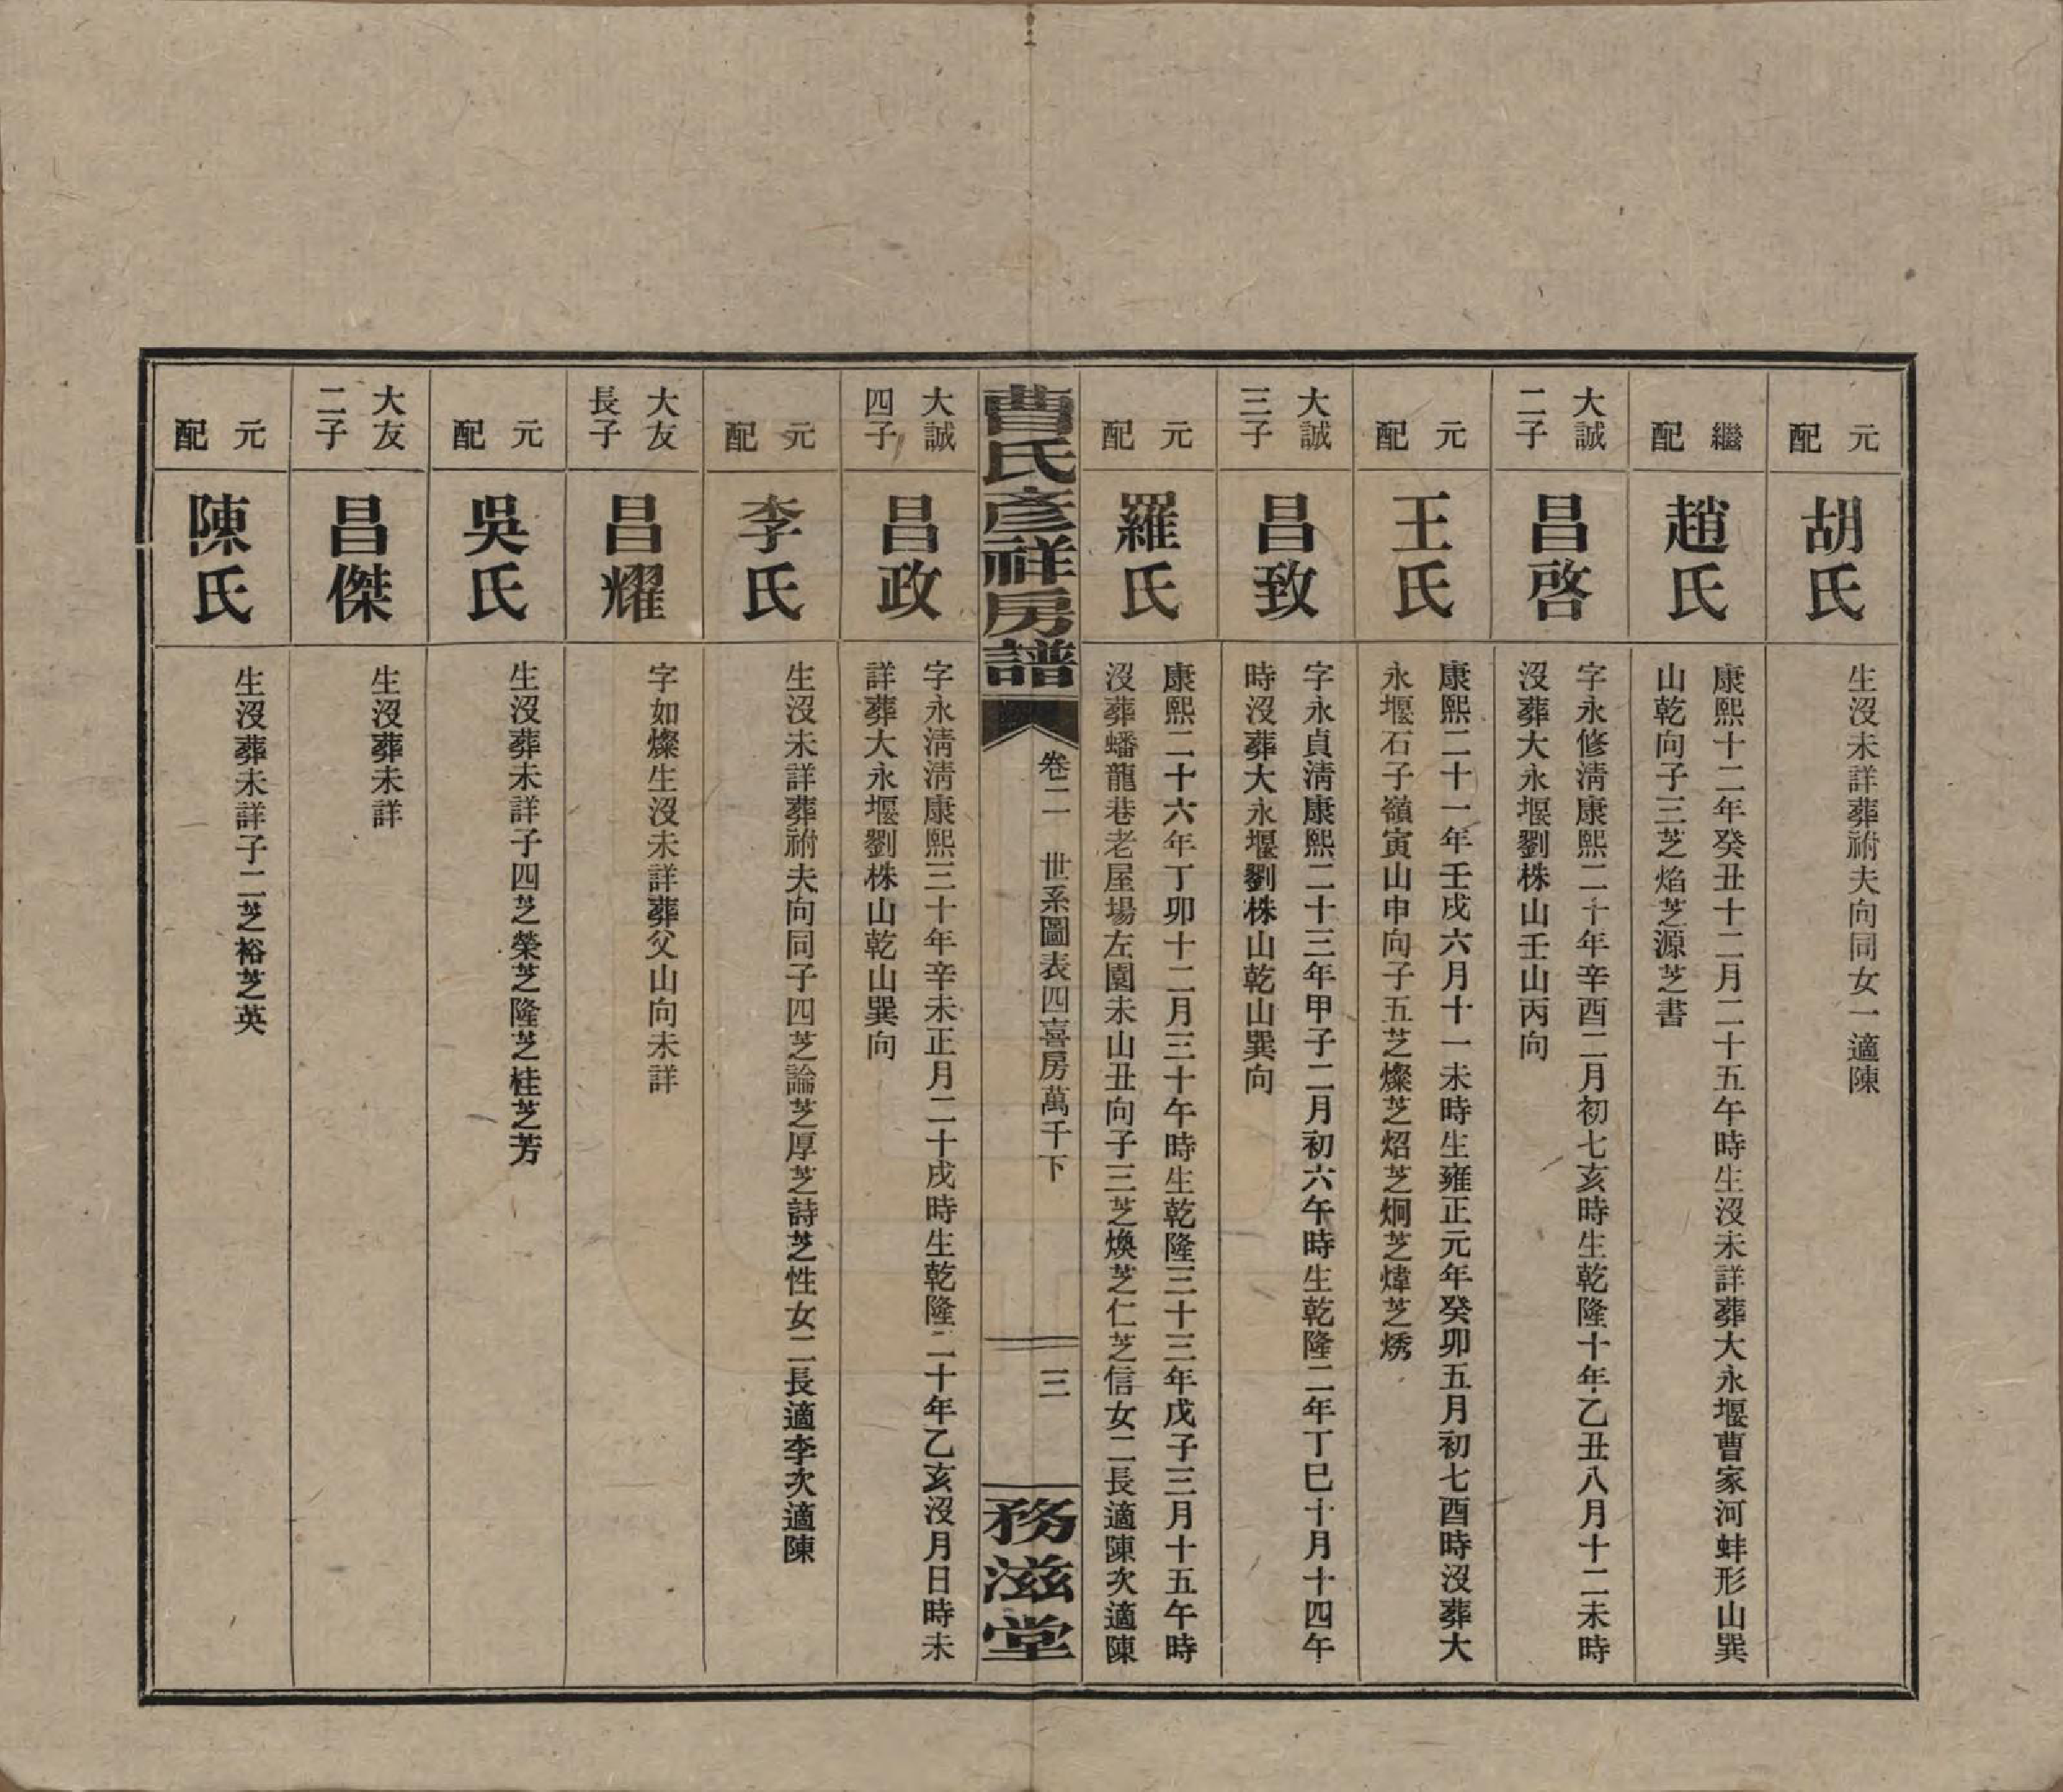 元配
胡氏
生沒未詳葬祔夫向同女一適陳
繼配
趙氏
康熙十二年癸丑十二月二十五午時生沒未詳葬大永堰曹家河蚌形山巽
山乾向子三芝焰芝源芝書
大誠
二子
昌啓
字永修淸康熙二十年辛酉二月初七亥時生乾隆十年乙丑八月十二未時
沒葬大永堰劉株山壬山丙向
元配
王氏
康熙二十一年壬戌六月十一未時生雍正元年癸卯五月初七酉時沒葬大
永堰石子嶺寅山申向子五芝燦芝炤芝炯芝煒芝㷰
大誠
三子
昌致
字永貞淸康熙二十三年甲子二月初六午時生乾隆二年丁巳十月十四午
時沒葬大永堰劉株山乾山巽向
元配
羅氏
康熙二十六年丁卯十二月三十午時生乾隆三十三年戊子三月十五午時
沒葬蟠龍巷老屋場左園未山丑向子三芝煥芝仁芝信女二長適陳次適陳
曹氏彥祥房譜
卷二 世系圖表四喜房萬千下
三
務滋堂
大誠
四子
昌政
字永淸淸康熙三十年辛未正月二十戌時生乾隆二十年乙亥沒月日時未
詳葬大永堰劉株山乾山巽向
元配
李氏
生沒未詳葬祔夫向同子四芝論芝厚芝詩芝性女二長適李次適陳
大友
長子
昌耀
字如燦生沒未詳葬父山向未詳
元配
吳氏
生沒葬未詳子四芝榮芝隆芝桂芝芳
大友
二子
昌傑
生沒葬未詳
元配
陳氏
生沒葬未詳子二芝裕芝英